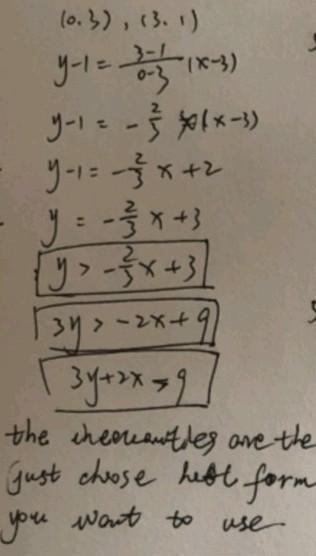 (0.3), (3.1)
y-1 = 3-1/0-3 (x-3)
y-1 = -2/3 (x-3)
y-1 = -2/3 x +2
y = -2/3 x +3
y > -2/3 x +3
3y > -2x + 9
3y+2x > 9
the are the
just choose form
you want to use